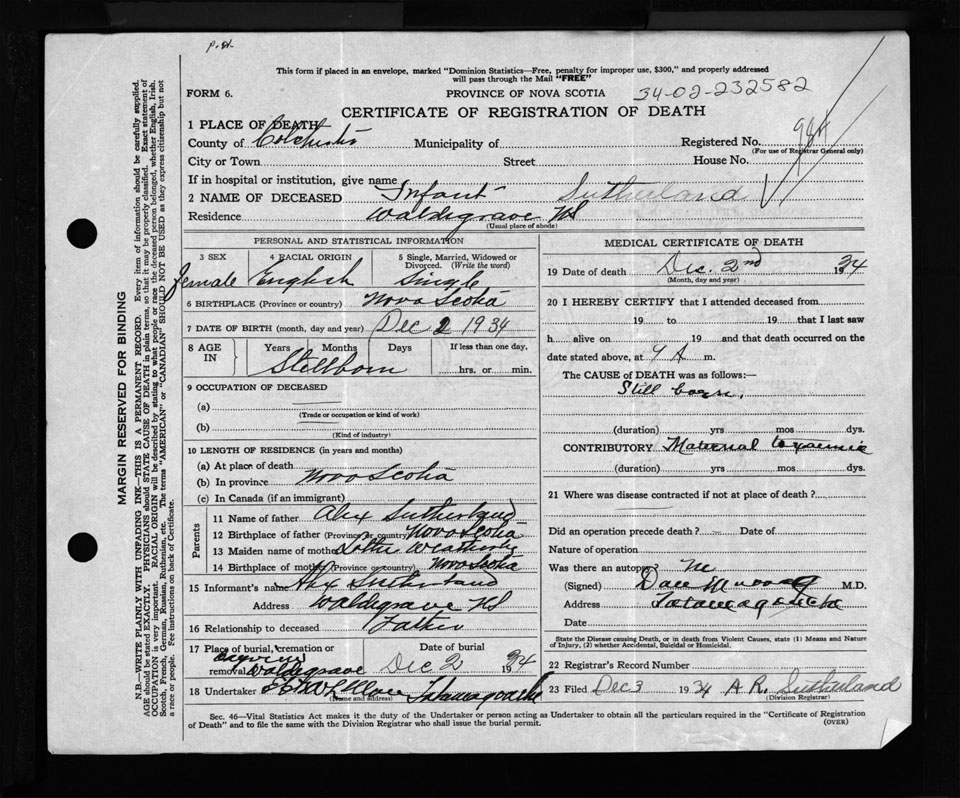 This form if placed in an envelope, marked "Dominion Statistics—Free, penalty for improper use, $300," and properly addressed
will pass through the Mail "FREE"
FORM 6. PROVINCE OF NOVA SCOTIA 34-02-232582
CERTIFICATE OF REGISTRATION OF DEATH
1 PLACE OF DEATH
County of Colchester Municipality of Registered No. 984
(For use of Registrar General only)
City or Town Street House No.
If in hospital or institution, give name
2 NAME OF DECEASED Infant Sutherland
Residence Waldegrave NS
(Usual place of abode)
MARGIN RESERVED FOR BINDING
N.B.—WRITE PLAINLY WITH UNFADING INK—THIS IS A PERMANENT RECORD. Every item of information should be carefully supplied.
AGE should be stated EXACTLY. PHYSICIANS should STATE CAUSE OF DEATH in plain terms, so that it may be properly classified. Exact statement of
OCCUPATION is very important. RACIAL ORIGIN will be described by stating to what people or race the deceased person belonged, whether English, Irish,
Scotch, French, German, Russian, Ruthenian, etc. The terms "AMERICAN" or "CANADIAN" SHOULD NOT BE USED as they express citizenship but not
a race or people. Fee instructions on back of Certificate.
PERSONAL AND STATISTICAL INFORMATION
3 SEX 4 RACIAL ORIGIN 5 Single, Married, Widowed or
Divorced. (Write the word)
Female English Single
6 BIRTHPLACE (Province or country) Nova Scotia
7 DATE OF BIRTH (month, day and year) Dec 2 1934
8 AGE IN Years Months Days If less than one day,
Stillborn hrs. or min.
9 OCCUPATION OF DECEASED
(a)
(Trade or occupation or kind of work)
(b)
(Kind of industry)
10 LENGTH OF RESIDENCE (in years and months)
(a) At place of death
(b) In province Nova Scotia
(c) In Canada (if an immigrant)
Parents
11 Name of father Alex Sutherland
12 Birthplace of father (Province or country) Nova Scotia
13 Maiden name of mother Lottie
14 Birthplace of mother (Province or country) Nova Scotia
15 Informant's name Alex Sutherland
Address Waldegrave NS
16 Relationship to deceased Father
17 Place of burial, cremation or Date of burial
removal Waldegrave Dec 2 1934
18 Undertaker Tatamagouche
(Name and address)
MEDICAL CERTIFICATE OF DEATH
19 Date of death Dec. 2nd 1934
(Month, day and year)
20 I HEREBY CERTIFY that I attended deceased from
19 to 19 that I last saw
h alive on 19 and that death occurred on the
date stated above, at 4 A m.
The CAUSE OF DEATH was as follows:—
Still born.
(duration) yrs mos dys.
CONTRIBUTORY Maternal toxaemia
(duration) yrs. mos dys.
21 Where was disease contracted if not at place of death?
Did an operation precede death? Date of
Nature of operation
Was there an autopsy? No
(Signed) Dan Murray M.D.
Address Tatamagouche
Date
State the Disease causing Death, or in death from Violent Causes, state (1) Means and Nature
of Injury, (2) whether Accidental, Suicidal or Homicidal.
22 Registrar's Record Number
23 Filed Dec 3 1934 A R. Sutherland
(Division Registrar)
Sec. 46—Vital Statistics Act makes it the duty of the Undertaker or person acting as Undertaker to obtain all the particulars required in the "Certificate of Registration
of Death" and to file the same with the Division Registrar who shall issue the burial permit. (OVER)